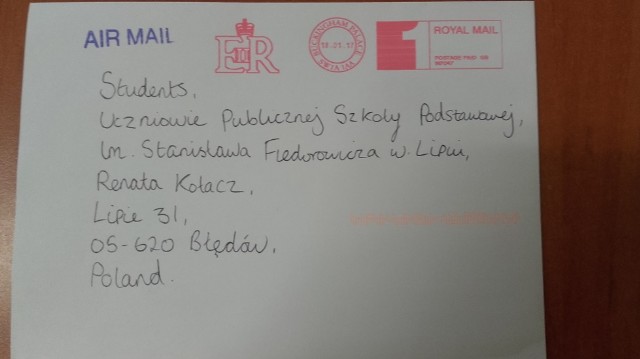 AIR MAIL
E II R
BUCKINGHAM PALACE
SW1A 1AA
1
ROYAL MAIL
Students,
Uczniowie Publicznej Szkoly Podstawowej,
Im. Stanislawa Fiedorowicza w. Lipiu,
Renata Kołacz,
Lipie 31,
05-620 Błędów,
Poland.